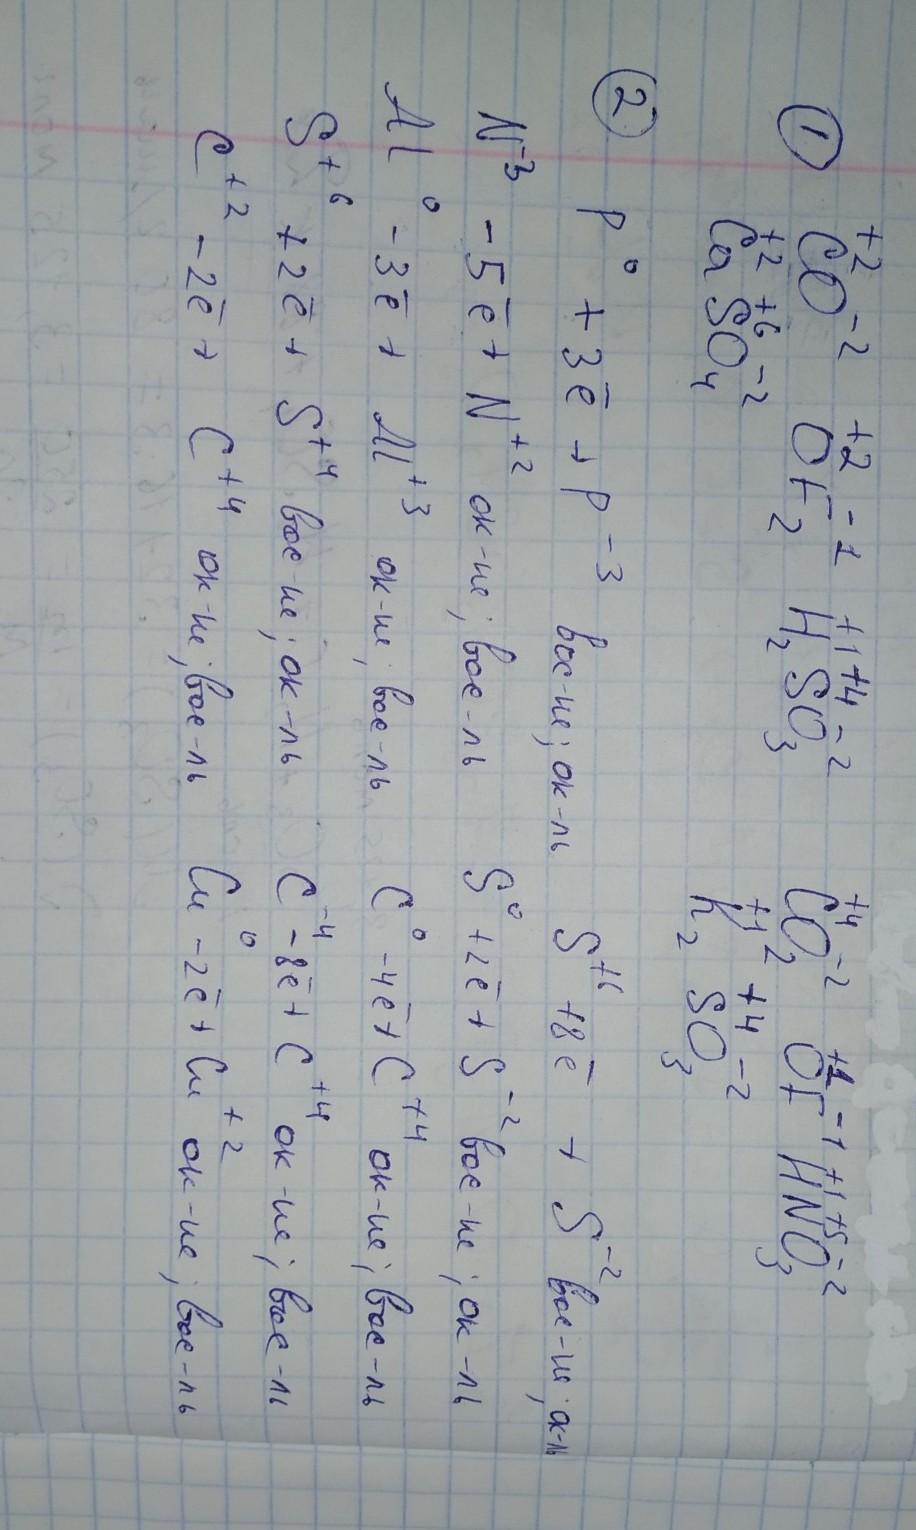 ① C⁺²O⁻² O⁺²F₂⁻¹ H₂⁺¹S⁺⁴O₃⁻² C⁺⁴O₂⁻² O⁺¹F⁻¹ H⁺¹N⁺⁵O₃⁻²
Ca⁺²S⁺⁶O₄⁻² K₂⁺¹S⁺⁴O₃⁻²
② P⁰ + 3ē → P⁻³ вос-ие; ок-ль S⁺⁶ +8ē → S⁻² вос-ие; ок-ль
N⁻³ - 5ē → N⁺² ок-ие; вос-ль S⁰ +2ē → S⁻² вос-ие; ок-ль
Al⁰ - 3ē → Al⁺³ ок-ие; вос-ль C⁰ -4ē → C⁺⁴ ок-ие; вос-ль
S⁺⁶ +2ē → S⁺⁴ вос-ие; ок-ль C⁻⁴ -8ē → C⁺⁴ ок-ие; вос-ль
C⁺² - 2ē → C⁺⁴ ок-ие; вос-ль Cu⁰ -2ē → Cu⁺² ок-ие; вос-ль